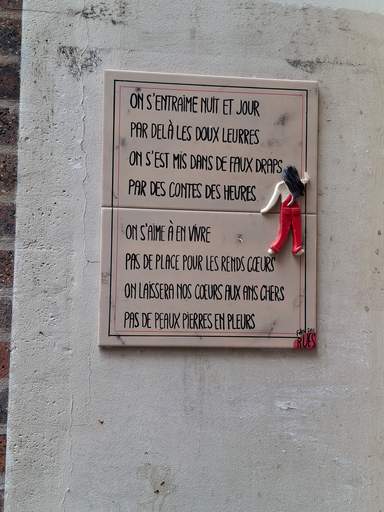 ON S'ENTRAIME NUIT ET JOUR
PAR DELÀ LES DOUX LEURRES
ON S'EST MIS DANS DE FAUX DRAPS
PAR DES CONTES DES HEURES
ON S'AIME À EN VIVRE
PAS DE PLACE POUR LES RENDS CŒURS
ON LAISSERA NOS CŒURS AUX ANS CHERS
PAS DE PEAUX PIERRES EN PLEURS
RUES